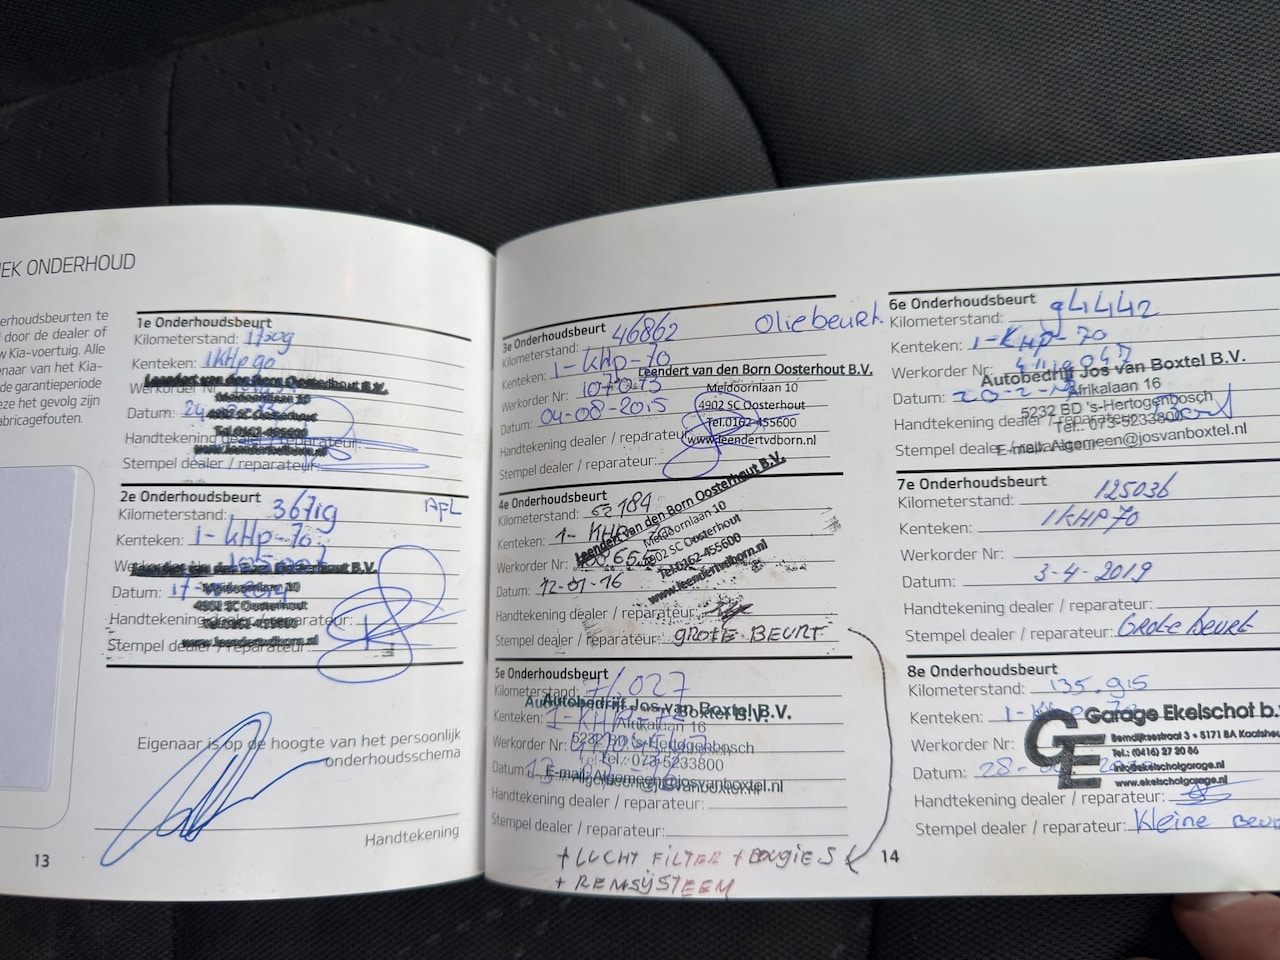 EK ONDERHOUD
erhoudsbeurten te
door de dealer of
w Kia-voertuig. Alle
enaar van het Kia-
de garantieperiode
eze het gevolg zijn
abricagefouten.
1e Onderhoudsbeurt
Kilometerstand:
Kenteken: 1KHP90
Leendert van den Born Oosterhout B.V.
Werkorder Nr
Meldoornlaan 10
Datum: 24
4902 SC Oosterhout
Tel.0162-455600
Handtekening dealer / reparateur:
www.leendertvdborn.nl
Stempel dealer / reparateur:
2e Onderhoudsbeurt
Kilometerstand: 36719 AFL
Kenteken: 1-KHP-70
Leendert van den Born Oosterhout B.V.
Datum: 17-
Meldoornlaan 10
4902 SC Oosterhout
Handtekening dealer / reparateur:
Tel.0162-455600
Stempel dealer / reparateur:
www.leendertvdborn.nl
Eigenaar is op de hoogte van het persoonlijk
onderhoudsschema
Handtekening
13
3e Onderhoudsbeurt Oliebeurt.
Kilometerstand: 46862
Kenteken: 1-KHP-70
Leendert van den Born Oosterhout B.V.
Werkorder Nr: 107073
Meldoornlaan 10
Datum: 04-08-2015
4902 SC Oosterhout
Tel.0162-455600
Handtekening dealer / reparateur:
www.leendertvdborn.nl
Stempel dealer / reparateur:
4e Onderhoudsbeurt
Kilometerstand: 62184
Kenteken: 1-KHP
Leendert van den Born Oosterhout B.V.
Werkorder Nr:
Meldoornlaan 10
4902 SC Oosterhout
Datum: 12-01-16
Tel.0162-455600
www.leendertvdborn.nl
Handtekening dealer / reparateur:
Stempel dealer / reparateur: GROTE BEURT
5e Onderhoudsbeurt
Kilometerstand: 71.027
Autobedrijf Jos van Boxtel B.V.
Kenteken: 1-KHP-72
Afrikalaan 16
Werkorder Nr:
5232 BD 's-Hertogenbosch
Tel.: 073-5233800
Datum: 13
E-mail: Algemeen@josvanboxtel.nl
Handtekening dealer / reparateur:
Stempel dealer / reparateur:
+ LUCHT FILTER + BOUGIES
+ REMSYSTEEM
14
6e Onderhoudsbeurt
Kilometerstand: 94442
Kenteken: 1-KHP-70
Werkorder Nr:
Autobedrijf Jos van Boxtel B.V.
Datum: 20-2-
Afrikalaan 16
5232 BD 's-Hertogenbosch
Handtekening dealer / reparateur:
Tel.: 073-5233800
Stempel dealer
E-mail: Algemeen@josvanboxtel.nl
7e Onderhoudsbeurt
Kilometerstand: 125036
Kenteken: 1KHP70
Werkorder Nr:
Datum: 3-4-2019
Handtekening dealer / reparateur:
Stempel dealer / reparateur: Grote beurt
8e Onderhoudsbeurt
Kilometerstand: 135.915
Kenteken: 1-KHP-70
GE Garage Ekelschot b.
Werkorder Nr:
Berndijksestraat 3 • 5171 BA Kaatsheu
Tel.: (0416) 27 20 86
Datum: 28-
info@ekelschotgarage.nl
www.ekelschotgarage.nl
Handtekening dealer / reparateur:
Stempel dealer / reparateur: Kleine Beur